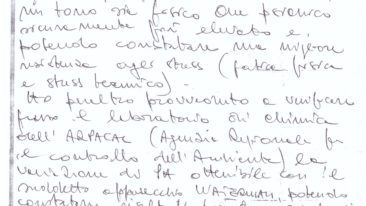 un tono sia fisico che psichico
sicuramente più elevato e
potendo constatare una migliore
resistenza agli stress (fatica fisica
e stress termico).
Ho inoltre provveduto a verificare
presso il laboratorio di chimica
dell'ARPACAL (Agenzia Regionale per
il controllo dell'Ambiente) la
variazione di PH ottenibile con il
suddetto apparecchio WATERMAN, potendo
constatare